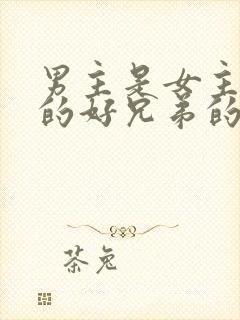 男主是女主
的好兄弟的
茶兔